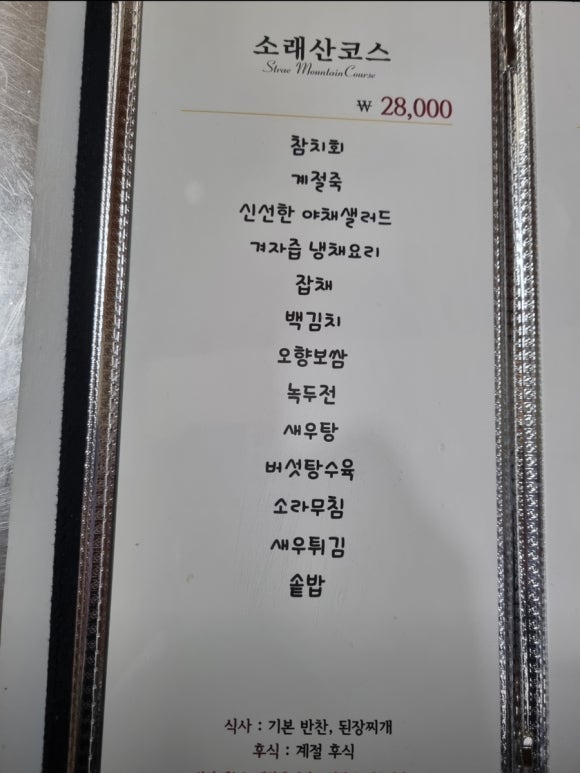 소래산코스
Strae Mountain Course
₩ 28,000
참치회
계절죽
신선한 야채샐러드
겨자즙 냉채요리
잡채
백김치
오향보쌈
녹두전
새우탕
버섯탕수육
소라무침
새우튀김
솥밥
식사 : 기본 반찬, 된장찌개
후식 : 계절 후식